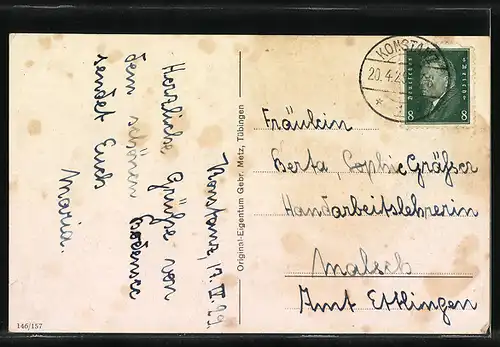 Konstanz, 17. IV 29.
Herzliche Grüße von
dem schönen Bodensee
sendet Euch
Maria.
Original-Eigentum Gebr. Metz, Tübingen
146/157
KONSTAN
20.4.29
Deutsches Reich
8 8
Fräulein
Berta, Sophie Gräßer
Handarbeitslehrerin
Malsch
Amt Ettlingen